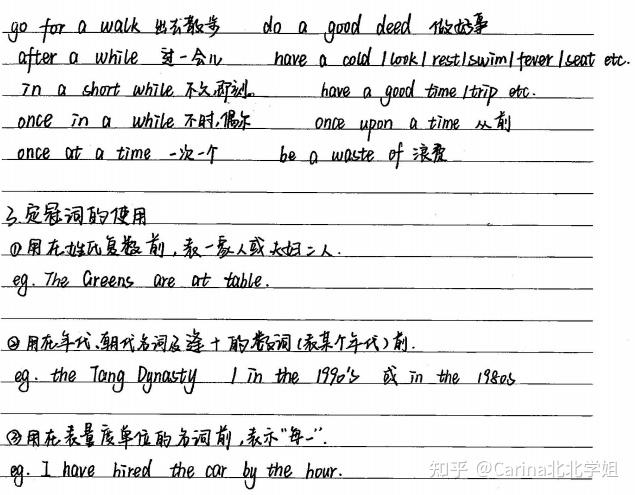 go for a walk 出去散步 do a good deed 做好事
after a while 过一会儿 have a cold / look / rest / swim / fever / seat etc.
in a short while 不久,即刻。 have a good time / trip etc.
once in a while 不时,偶尔 once upon a time 从前
once at a time 一次一个 be a waste of 浪费
3.定冠词的使用
①用在姓氏复数前,表一家人或夫妇二人.
eg. The Greens are at table.
②用在年代、朝代名词及逢十的数词(表某个年代)前.
eg. the Tang Dynasty / in the 1990's 或 in the 1980s
③用在表量度单位的名词前,表示"每一".
eg. I have hired the car by the hour.
知乎 @Carina北北学姐